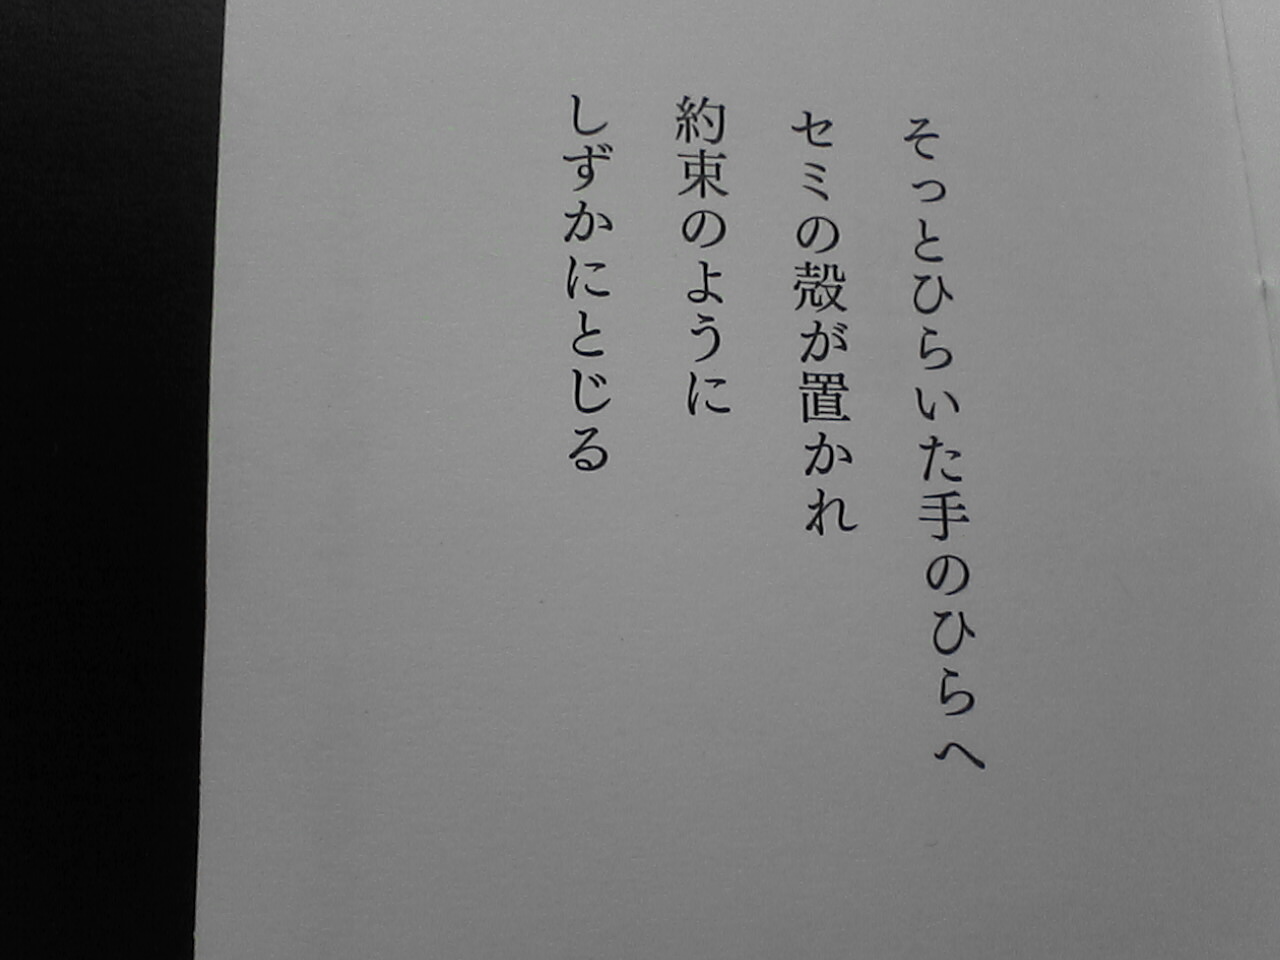 そっとひらいた手のひらへ
セミの殻が置かれ
約束のように
しずかにとじる